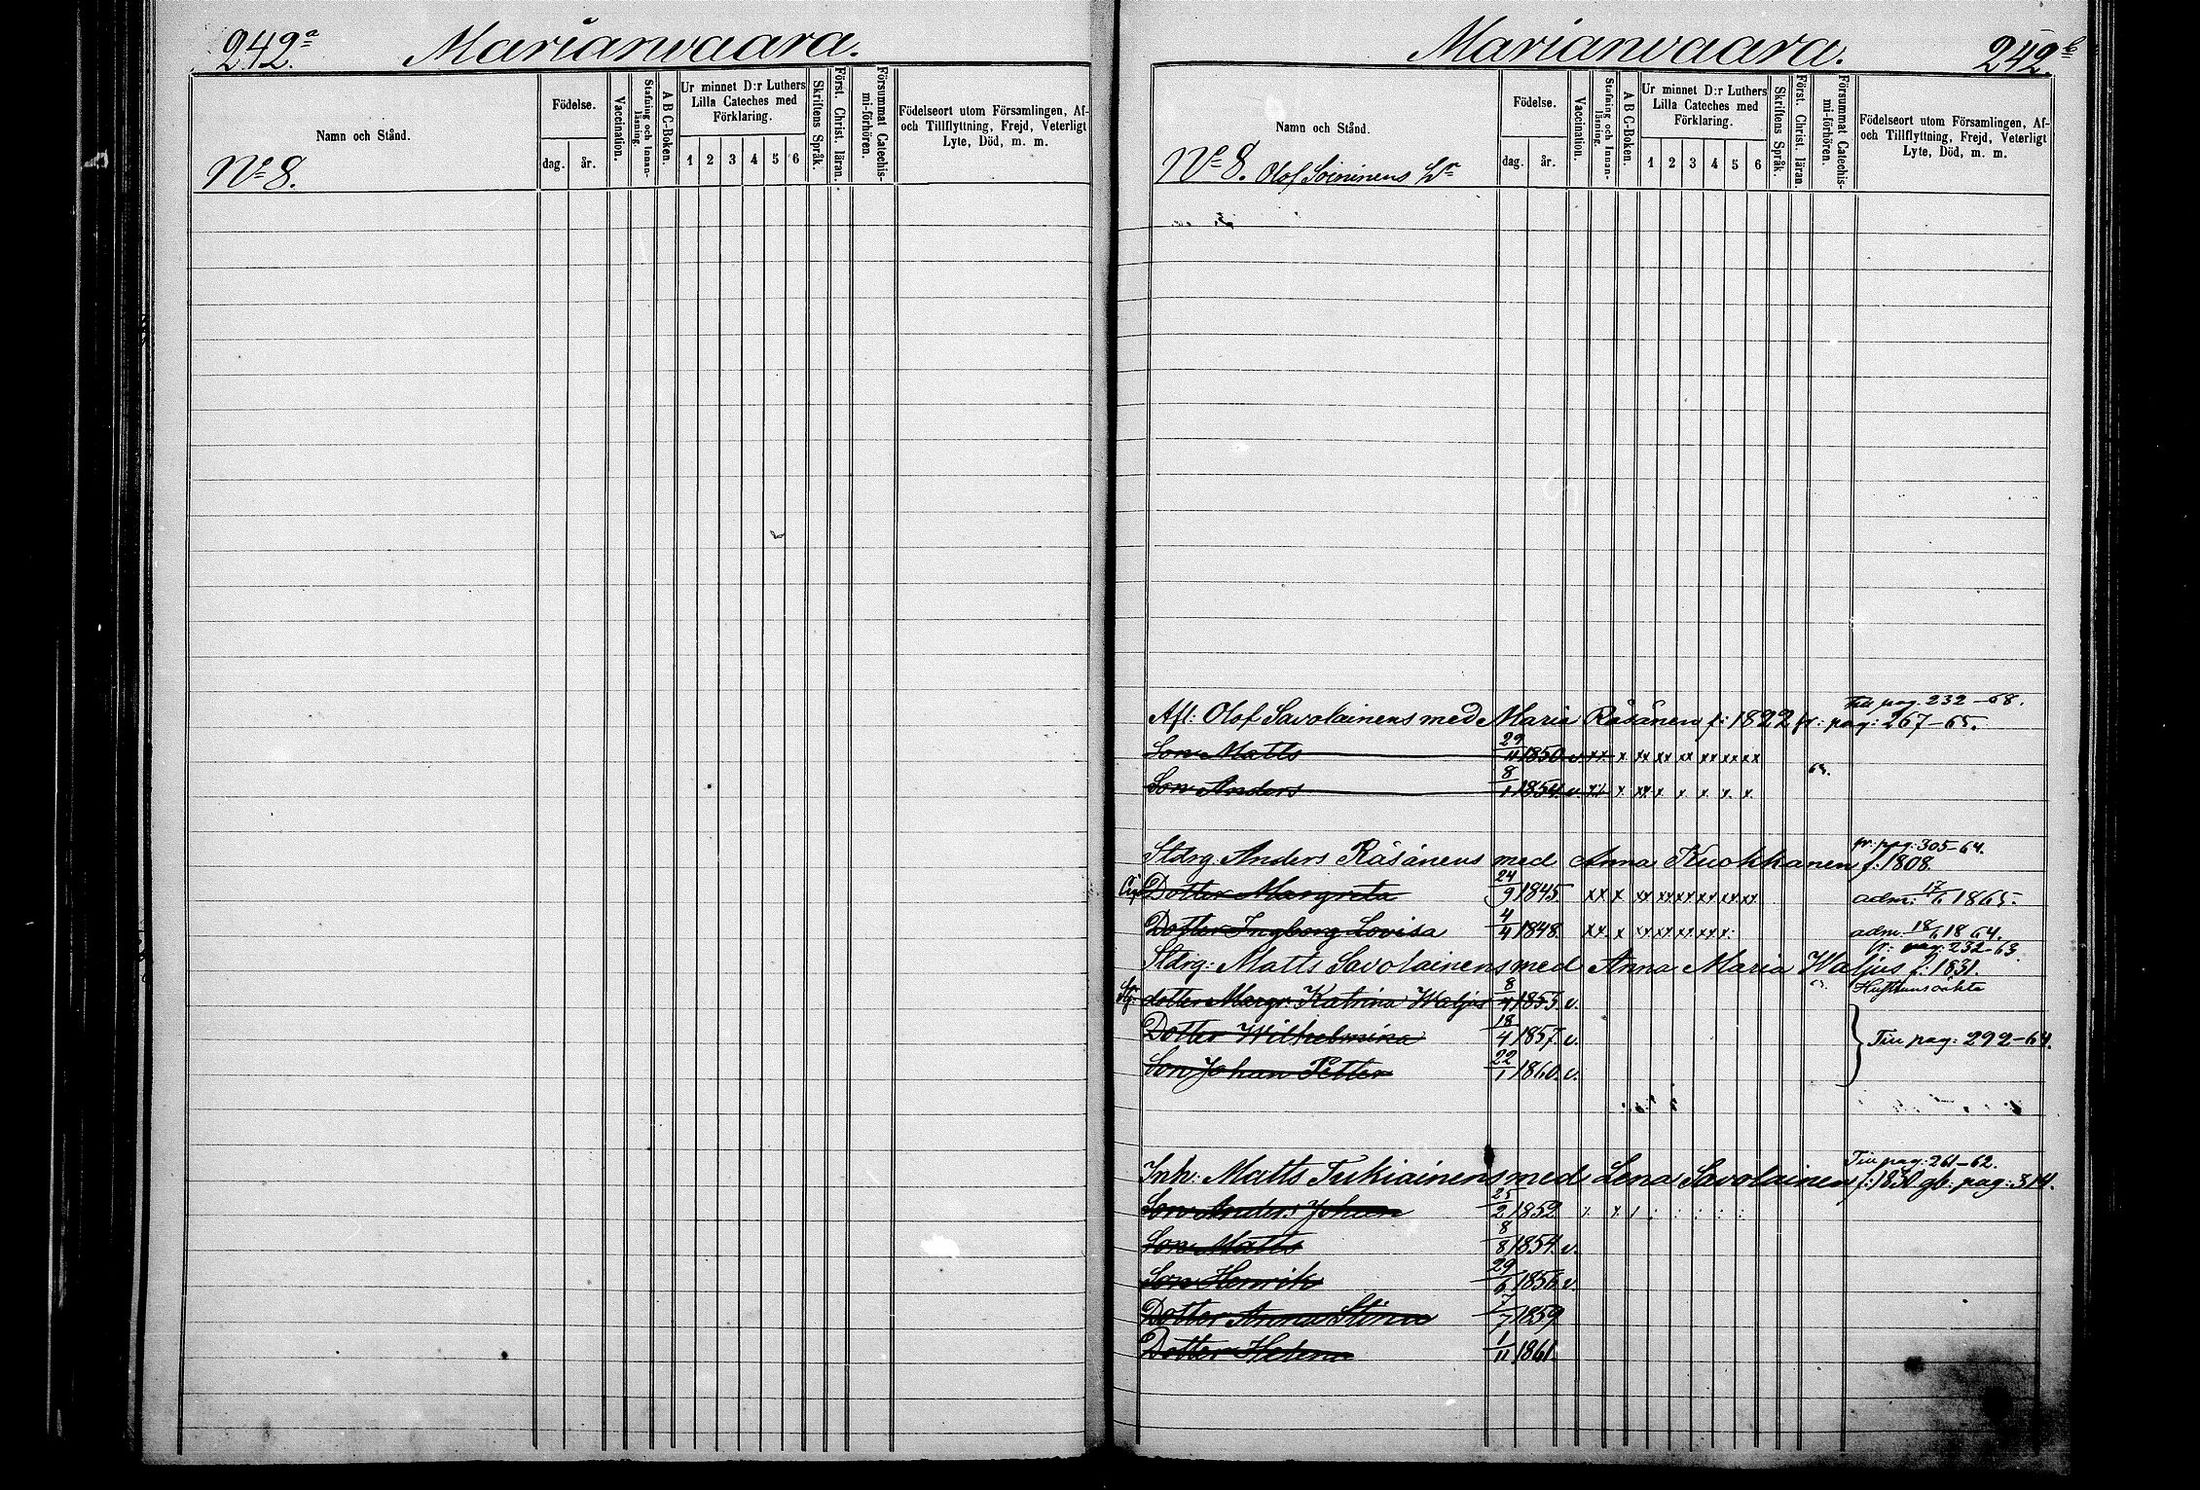 242.a Marianvaara.
Namn och Stånd.
Födelse.
dag. år.
Vaccination.
Stafning och Innanläsning.
A B C-Boken.
Ur minnet D:r Luthers
Lilla Cateches med
Förklaring.
1 2 3 4 5 6
Skriftens Språk.
Först. Christ. läran.
Försummat Catechismi-förhören.
Födelseort utom Församlingen, Af-
och Tillflyttning, Frejd, Veterligt
Lyte, Död, m. m.
No 8.
Marianvaara. 242.b
Namn och Stånd.
Födelse.
dag. år.
Vaccination.
Stafning och Innanläsning.
A B C-Boken.
Ur minnet D:r Luthers
Lilla Cateches med
Förklaring.
1 2 3 4 5 6
Skriftens Språk.
Först. Christ. läran.
Försummat Catechismi-förhören.
Födelseort utom Församlingen, Af-
och Tillflyttning, Frejd, Veterligt
Lyte, Död, m. m.
No 8. Olof Soininens
Till pag. 232-68.
Afl: Olof Savolainens med Maria Räsänen f: 1822 fr: pag: 267-65.
Son Matts 29/11 1850 v. xx x xx xx xx xx xx xx
63.
Son Anders 8/1 1854 v. xx x xx x x x x x
fr: pag: 305-64.
Stdrg. Anders Räsänens med Anna Kuokkanen f: 1808.
Dotter Margreta 24/9 1845. xx x xx xx xx xx xx xx adm. 17/6 1865.
Dotter Ingborg Lovisa 4/4 1848. xx x xx xx xx xx x adm. 18/6 1864.
fr: pag: 232-63.
Stdrg: Matts Savolainens med Anna Maria Waljus f: 1831.
dotter Margr: Katrina Waljus 8/4 1855. v.
Dotter Wilhelmina 18/4 1857. v.
Till pag: 292-64.
Son Johan Petter 22/1 1860. v.
Till pag: 261-62.
Inh: Matts Tukiainens med Lena Savolainen f: 1830 gb: pag: 314.
Son Anders Johan 25/2 1852
Son Matts 8/8 1854. v.
Son Henrik 29/6 1856 v.
Dotter Anna Stina 7/7 1859
Dotter Helena 1/11 1861.